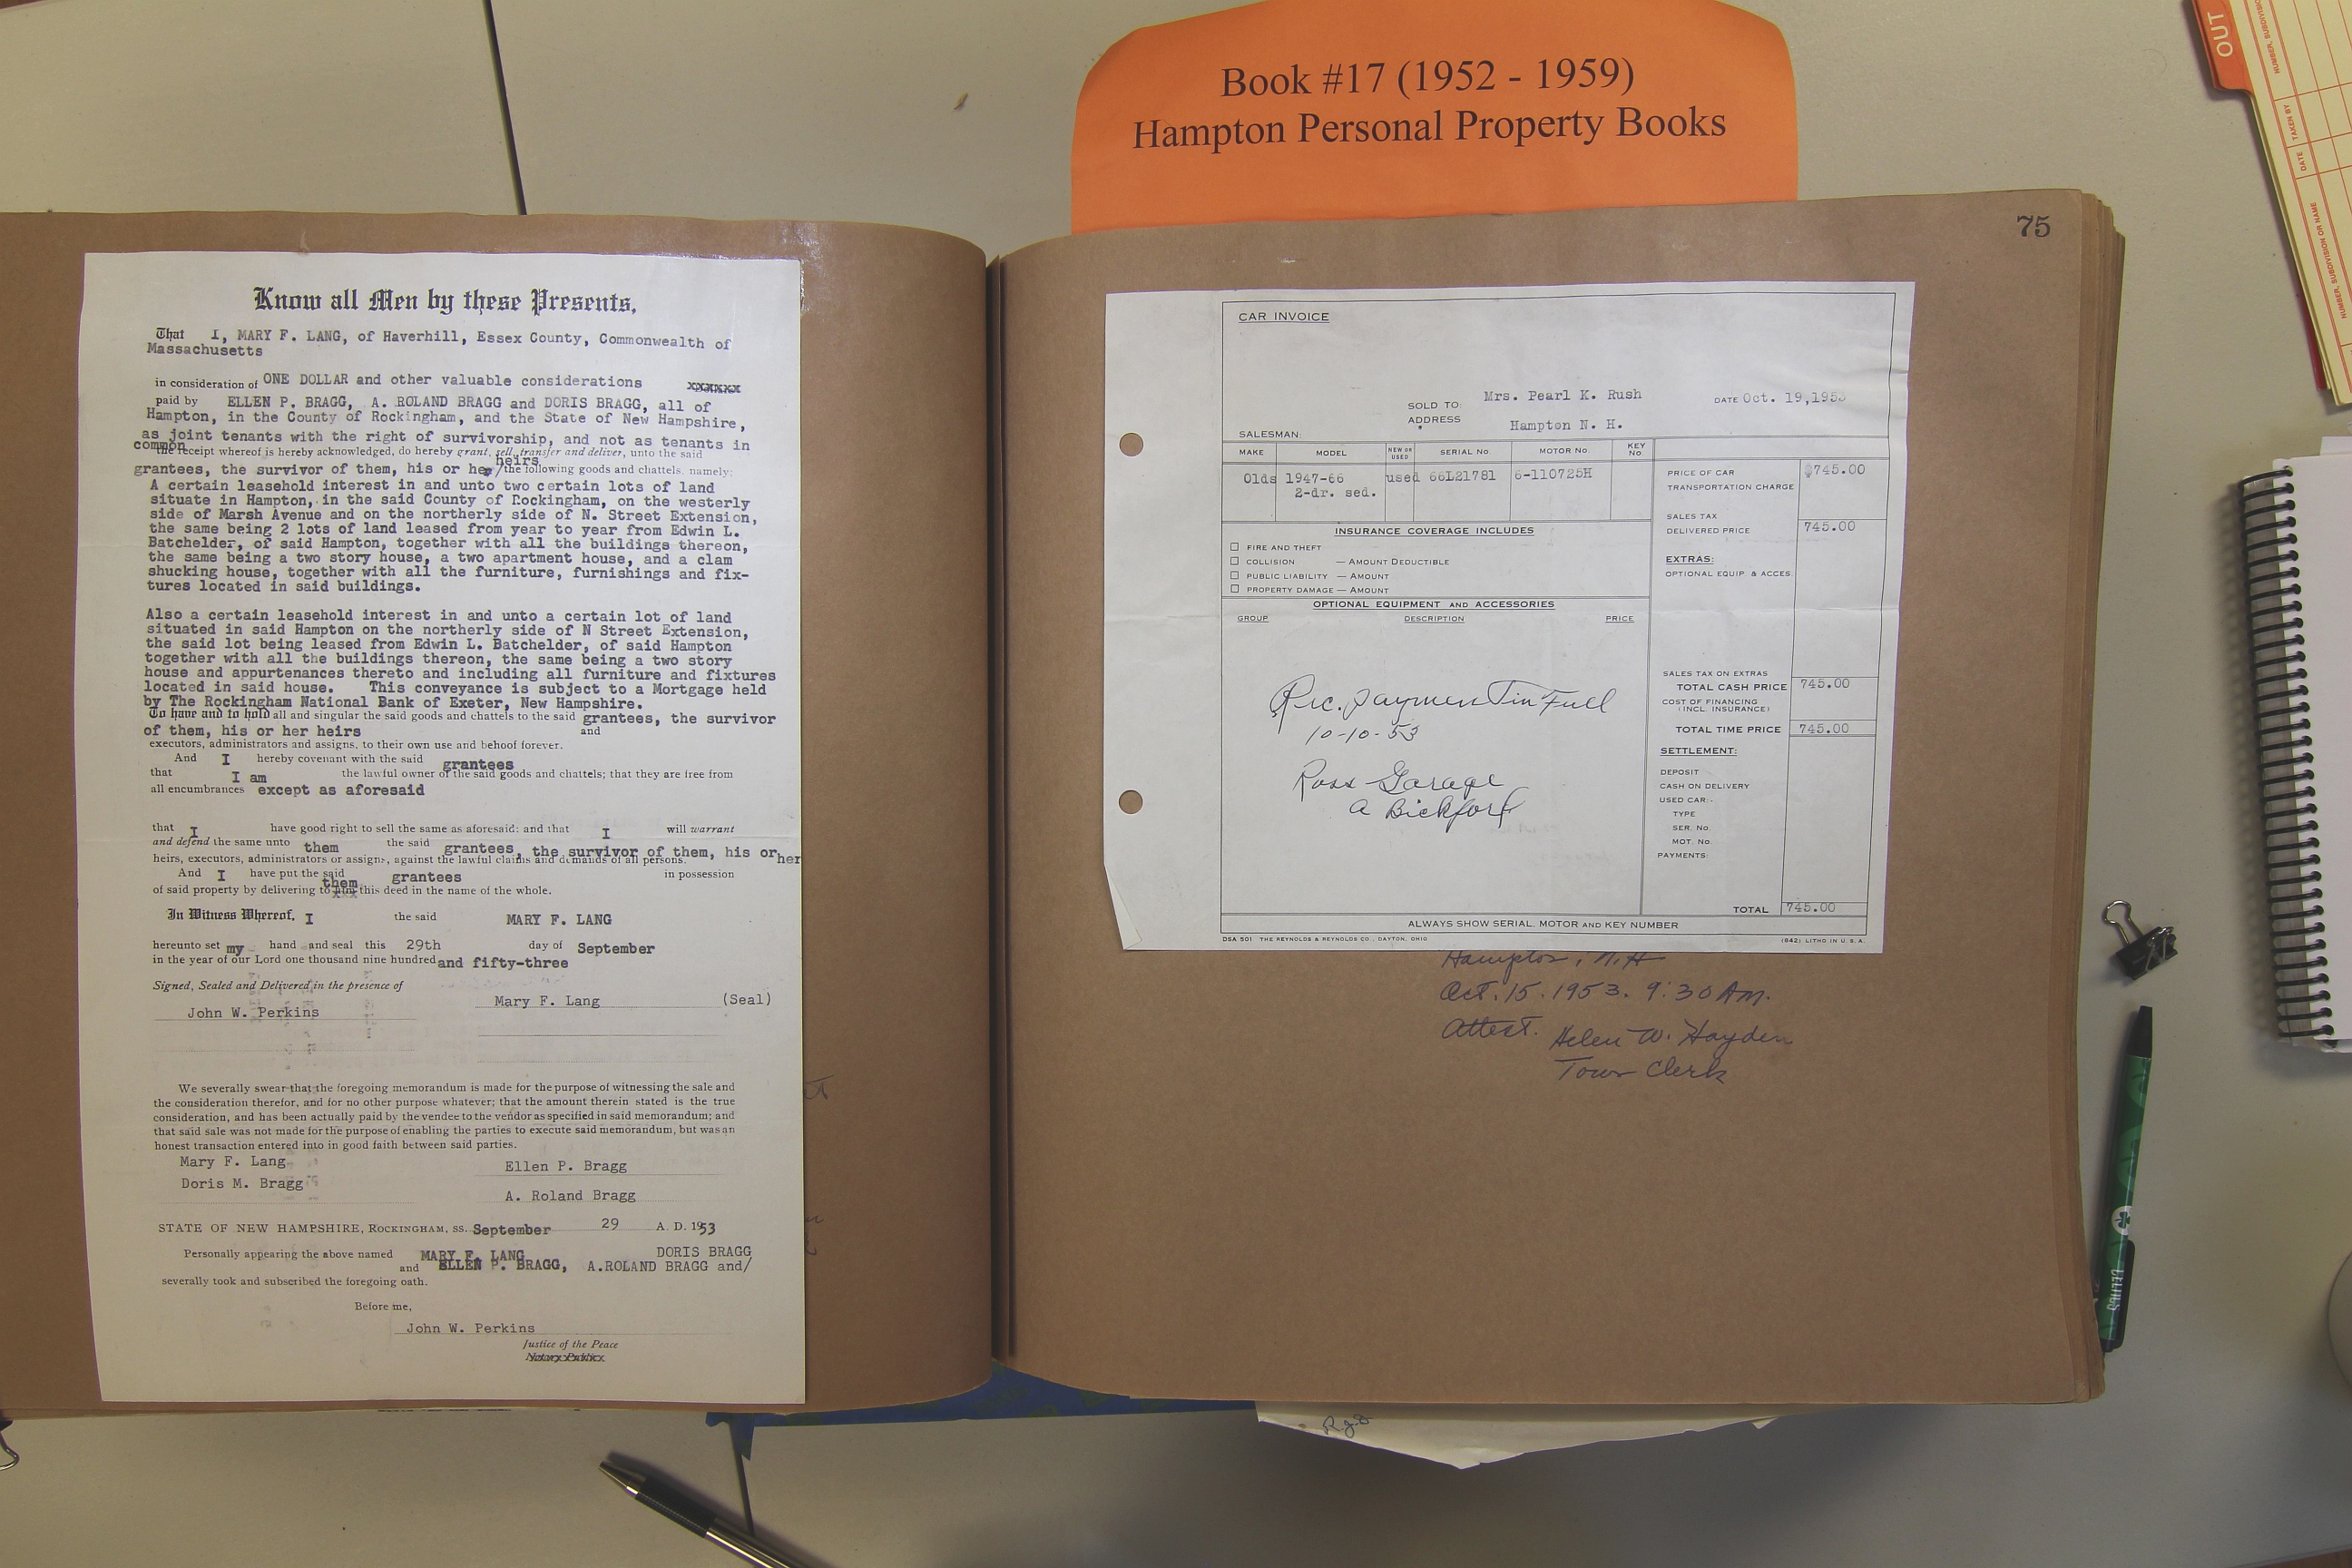 Book #17 (1952 - 1959)
Hampton Personal Property Books
OUT
NUMBER, SUBDIVISION OR NAME
DATE
TAKEN BY
NUMBER, SUBDIVISION
75
Know all Men by these Presents,
That I, MARY F. LANG, of Haverhill, Essex County, Commonwealth of
Massachusetts
in consideration of ONE DOLLAR and other valuable considerations xxxxxx
paid by ELLEN P. BRAGG, A. ROLAND BRAGG and DORIS BRAGG, all of
Hampton, in the County of Rockingham, and the State of New Hampshire,
as joint tenants with the right of survivorship, and not as tenants in
common
the receipt whereof is hereby acknowledged, do hereby grant, sell, transfer and deliver, unto the said
heirs
grantees, the survivor of them, his or her/the following goods and chattels, namely:
A certain leasehold interest in and unto two certain lots of land
situate in Hampton, in the said County of Rockingham, on the westerly
side of Marsh Avenue and on the northerly side of N. Street Extension,
the same being 2 lots of land leased from year to year from Edwin L.
Batchelder, of said Hampton, together with all the buildings thereon,
the same being a two story house, a two apartment house, and a clam
shucking house, together with all the furniture, furnishings and fix-
tures located in said buildings.
Also a certain leasehold interest in and unto a certain lot of land
situated in said Hampton on the northerly side of N Street Extension,
the said lot being leased from Edwin L. Batchelder, of said Hampton
together with all the buildings thereon, the same being a two story
house and appurtenances thereto and including all furniture and fixtures
located in said house. This conveyance is subject to a Mortgage held
by The Rockingham National Bank of Exeter, New Hampshire.
To have and to hold all and singular the said goods and chattels to the said grantees, the survivor
of them, his or her heirs and
executors, administrators and assigns, to their own use and behoof forever.
And I hereby covenant with the said grantees
that I am the lawful owner of the said goods and chattels; that they are free from
all encumbrances except as aforesaid
that I have good right to sell the same as aforesaid; and that I will warrant
and defend the same unto them the said grantees, the survivor of them, his or her
heirs, executors, administrators or assigns, against the lawful claims and demands of all persons.
And I have put the said grantees in possession
them
of said property by delivering to him this deed in the name of the whole.
In Witness Whereof, I the said MARY F. LANG
hereunto set my hand and seal this 29th day of September
in the year of our Lord one thousand nine hundred and fifty-three
Signed, Sealed and Delivered in the presence of
Mary F. Lang (Seal)
John W. Perkins
We severally swear that the foregoing memorandum is made for the purpose of witnessing the sale and
the consideration therefor, and for no other purpose whatever; that the amount therein stated is the true
consideration, and has been actually paid by the vendee to the vendor as specified in said memorandum; and
that said sale was not made for the purpose of enabling the parties to execute said memorandum, but was an
honest transaction entered into in good faith between said parties.
Mary F. Lang Ellen P. Bragg
Doris M. Bragg
A. Roland Bragg
STATE OF NEW HAMPSHIRE, ROCKINGHAM, SS. September 29 A. D. 1953
Personally appearing the above named MARY F. LANG DORIS BRAGG
and ELLEN P. BRAGG, A.ROLAND BRAGG and/
severally took and subscribed the foregoing oath.
Before me,
John W. Perkins
Justice of the Peace
Notary Public
CAR INVOICE
SOLD TO: Mrs. Pearl K. Rush DATE Oct. 19,1953
ADDRESS Hampton N. H.
SALESMAN:
MAKE MODEL NEW OR USED SERIAL No. MOTOR No. KEY No.
Olds 1947-66 used 66L21781 6-110725H
2-dr. sed.
PRICE OF CAR $745.00
TRANSPORTATION CHARGE
SALES TAX
DELIVERED PRICE 745.00
EXTRAS:
OPTIONAL EQUIP. & ACCES.
INSURANCE COVERAGE INCLUDES
FIRE AND THEFT
COLLISION — AMOUNT DEDUCTIBLE
PUBLIC LIABILITY — AMOUNT
PROPERTY DAMAGE — AMOUNT
OPTIONAL EQUIPMENT AND ACCESSORIES
GROUP DESCRIPTION PRICE
Rec. payment in Full
10-10-53
Ross Garage
A Bickford
SALES TAX ON EXTRAS
TOTAL CASH PRICE 745.00
COST OF FINANCING
(INCL. INSURANCE)
TOTAL TIME PRICE 745.00
SETTLEMENT:
DEPOSIT
CASH ON DELIVERY
USED CAR:-
TYPE
SER. No.
MOT. No.
PAYMENTS:
TOTAL 745.00
ALWAYS SHOW SERIAL, MOTOR AND KEY NUMBER
DSA 501 THE REYNOLDS & REYNOLDS CO., DAYTON, OHIO (642) LITHO IN U. S. A.
Hampton, N.H
Oct. 15. 1953. 9:30 AM.
Attest. Helen W. Hayden
Town Clerk